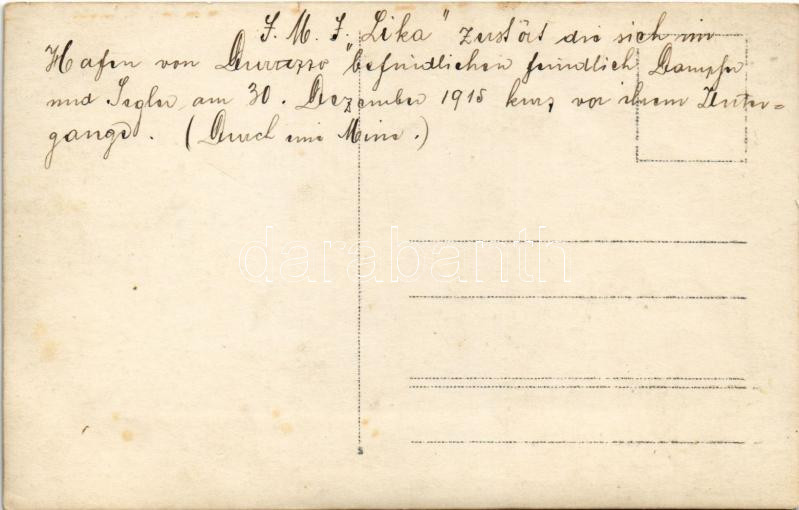 S. M. S. "Lika" zustört die sich im
Hafen von "Durazzo" befindlichen feindlich Dampfer
und Segler am 30. Dezember 1915 kurz vor ihrem Unter=
gange. (Durch eine Mine.)
darabanth